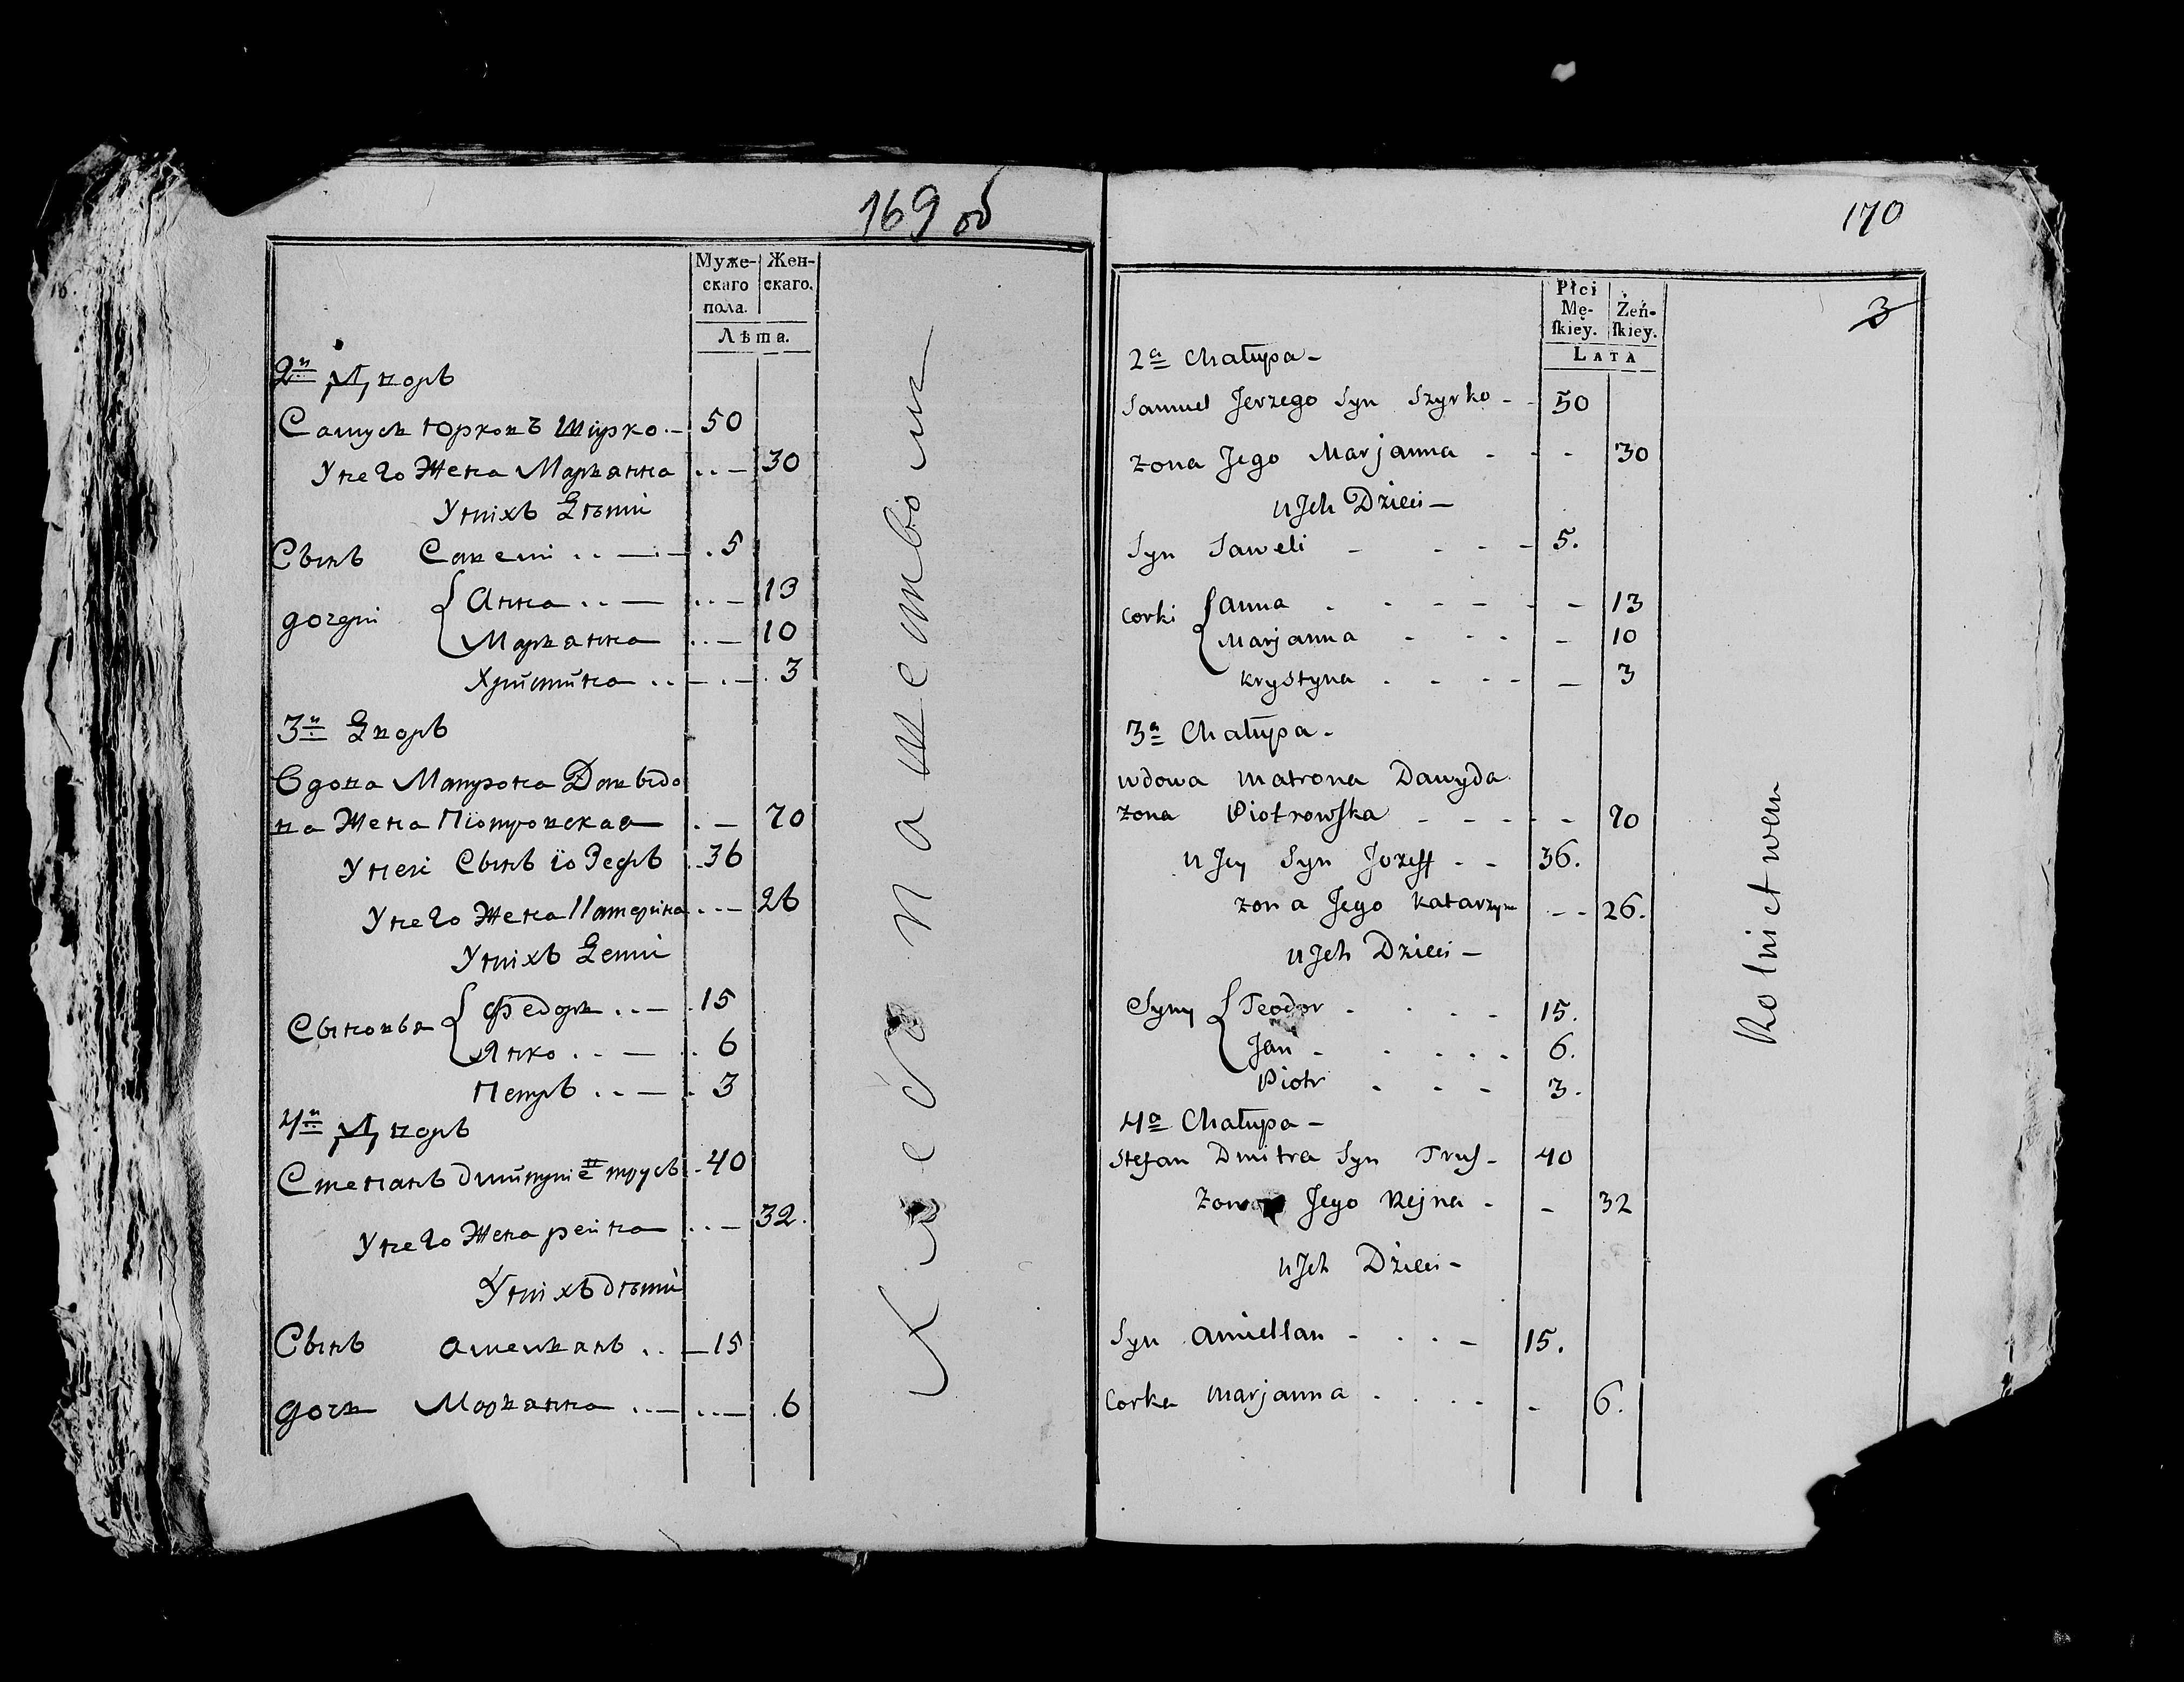 169 об
Муже-
скаго
пола.
Жен-
скаго.
Лѣта.
2й Дворъ
Самуель Юрковъ Шырко . — 50
У него Жена Марьянна .. — 30
У нихъ Дѣти
Сынъ Савели .. — . 5
дочери { Анна .. — ... 13
Марьянна ... — 10
Христина .. — . — . 3
3й Дворъ
Вдова Матрона Давыдо
ва Жена Піотровская . — 70
У неи Сынъ іозефъ . 36
У него Жена Катерина ... — 26
У нихъ Дети
Сыновья { Федоръ .. — . 15
Янко .. — . 6
Петръ .. — . 3
4й Дворъ
Степанъ Дмитриев трусь . 40
У него Жена реина ... — 32.
У нихъ дѣти
Сынъ амельянъ .. — 15
дочь Марьянна ... — ... — . 6
Хлебопашеством
170
3
Płci
Mę-
ſkiey.
Żeń-
ſkiey.
Lata
2a Chałupa —
Samuel Jerzego Syn Szyrko - - 50
żona Jego Marjanna - - - 30
u Jch Dzieci —
Syn Saweli - - - - 5.
Corki { anna . - - - - - 13
Marjanna - - - - 10
krystyna . - - - - 3
3a Chałupa -
wdowa Matrona Dawyda
żona Piotrowſka - - - - - 70
u Jey Syn Jozeff - - 36.
żona Jego Katarzyna - - 26.
u Jch Dzieci —
Syny { Teodor - - - - 15.
Jan - - - - - 6.
Piotr - - - 3.
4a Chałupa —
Stefan Dmitra Syn Truſ - 40
żona Jego Rejna - - 32
u Jch Dzieci -
Syn amiellan - . . - 15.
Corka Marjanna . . . . - 6.
Rolnictwem